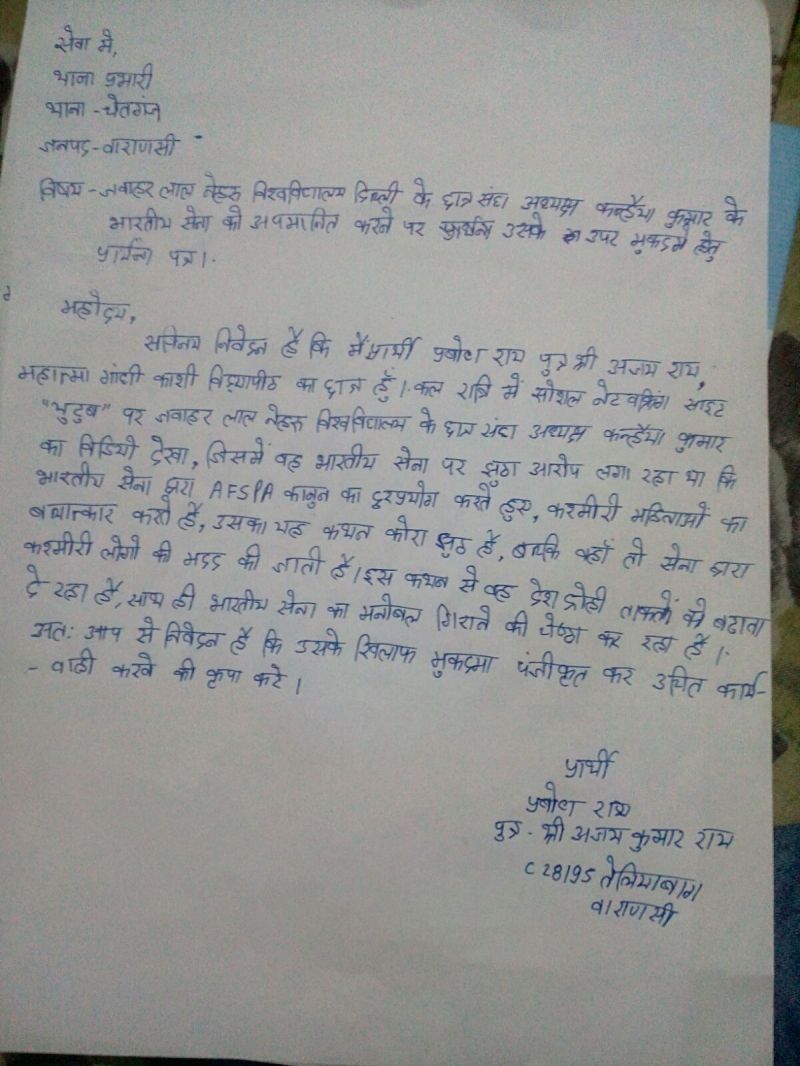 सेवा मे,
थाना प्रभारी
थाना - चेतगंज
जनपद - वाराणसी
विषय - जवाहर लाल नेहरू विश्वविद्यालय दिल्ली के छात्र संघ अध्यक्ष कन्हैया कुमार के
भारतीय सेना को अपमानित करने पर उसके उपर मुकदमे हेतु
प्रार्थना पत्र।
महोदय,
सविनय निवेदन है कि मैं प्रार्थी प्रबोध राय पुत्र श्री अजय राय,
महात्मा गांधी काशी विद्यापीठ का छात्र हूँ। कल रात्रि में सोशल नेटवर्किंग साइट
"युटुब" पर जवाहर लाल नेहरू विश्वविद्यालय के छात्र संघ अध्यक्ष कन्हैया कुमार
का विडियो देखा, जिसमें वह भारतीय सेना पर झुठा आरोप लगा रहा था कि
भारतीय सेना द्वारा AFSPA कानुन का दुरप्रयोग करते हुए, कश्मीरी महिलाओं का
बलात्कार करते है, उसका यह कथन कोरा झुठ है, बल्कि वहाँ तो सेना द्वारा
कश्मीरी लोगो की मदद की जाती है। इस कथन से वह देश द्रोही ताकतों को बढावा
दे रहा है, साथ ही भारतीय सेना का मनोबल गिराने की चेष्ठा कर रहा है।
अतः आप से निवेदन है कि उसके खिलाफ मुकदमा पंजीकृत कर उचित कार्य-
- वाही करने की कृपा करे।
प्रार्थी
प्रबोध राय
पुत्र - श्री अजय कुमार राय
C 28/95 तेलियाबाग
वाराणसी